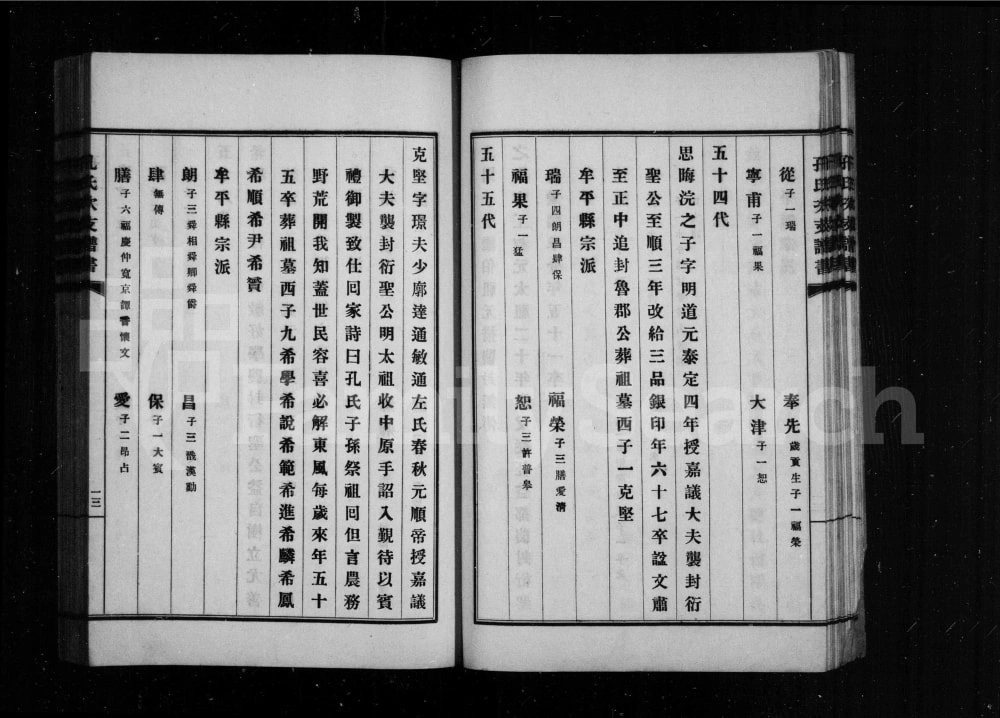 孔氏次支譜書
從子一瑞 奉先歲貢生子一福榮
寧甫子一福果 大津子一恕
五十四代
思晦浣之子字明道元泰定四年授嘉議大夫襲封衍
聖公至順三年改給三品銀印年六十七卒諡文肅
至正中追封魯郡公葬祖墓西子一克堅
牟平縣宗派
瑞子四朗昌肆保 福榮子三膳愛清
福果子一猛 恕子三許普皋
五十五代
克堅字璟夫少廓達通敏通左氏春秋元順帝授嘉議
大夫襲封衍聖公明太祖收中原手詔入覲待以賓
禮御製致仕回家詩曰孔氏子孫祭祖回但言農務
野荒開我知蓋世民容喜必解東風每歲來年五十
五卒葬祖墓西子九希學希說希範希進希麟希鳳
希順希尹希贇
牟平縣宗派
朗子三舜相舜卿舜爵 昌子三戩漢勳
肆無傳 保子一大賓
膳子六福慶仲寬京譚 懷文 愛子二昂占
孔氏次支譜書
一三